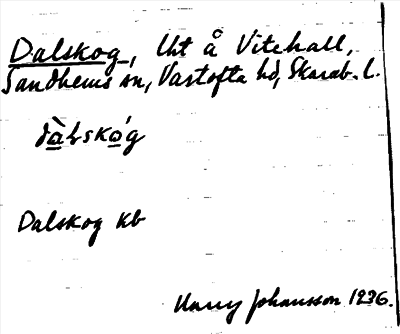 Dalskog, Uht å Vitehall,
Sandhems sn, Vartofta hd, Skarab. l.
dàlskóg
Dalskog kb
Harry Johansson 1936.